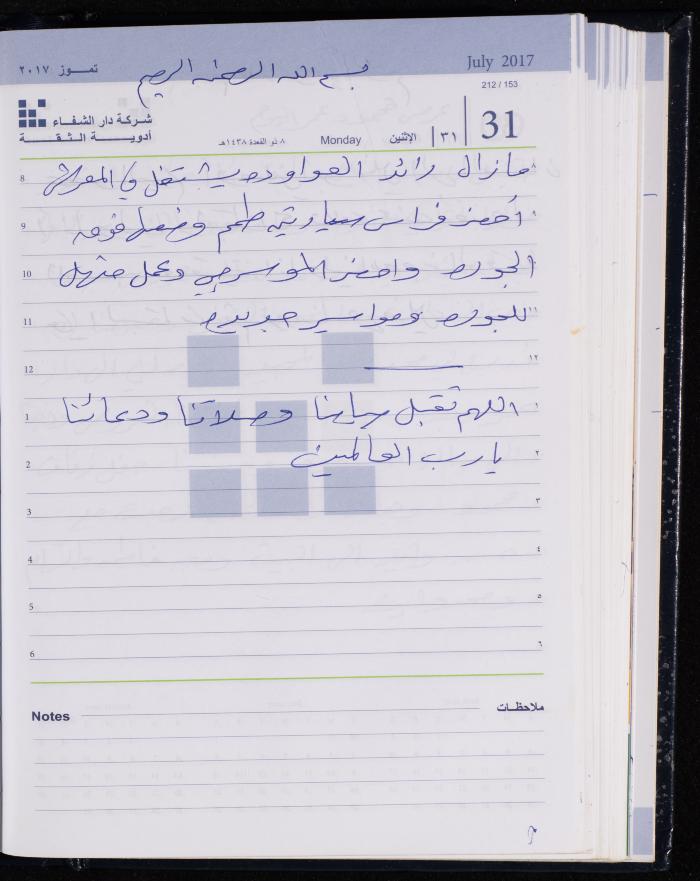 تمـوز ٢٠١٧
بسم الله الرحمن الرحيم
July 2017
212 / 153
شركة دار الشفاء
أدويـــة الـثـقـــة
٨ ذو القعدة ١٤٣٨هـ
Monday
الإثنين
٣١
31
8 مازال رائد العواوده يشتغل في
9 أحضر فراس سيارتين طمم وضعها فوق
10 الجوره واحضر الموسرجي وعمل منهل
11 للجوره ومواسير جديده
12 ١٢
1 اللهم تقبل صيامنا وصلاتنا ودعائنا ١
2 يارب العالمين ٢
3 ٣
4 ٤
5 ٥
6 ٦
Notes ملاحظـات